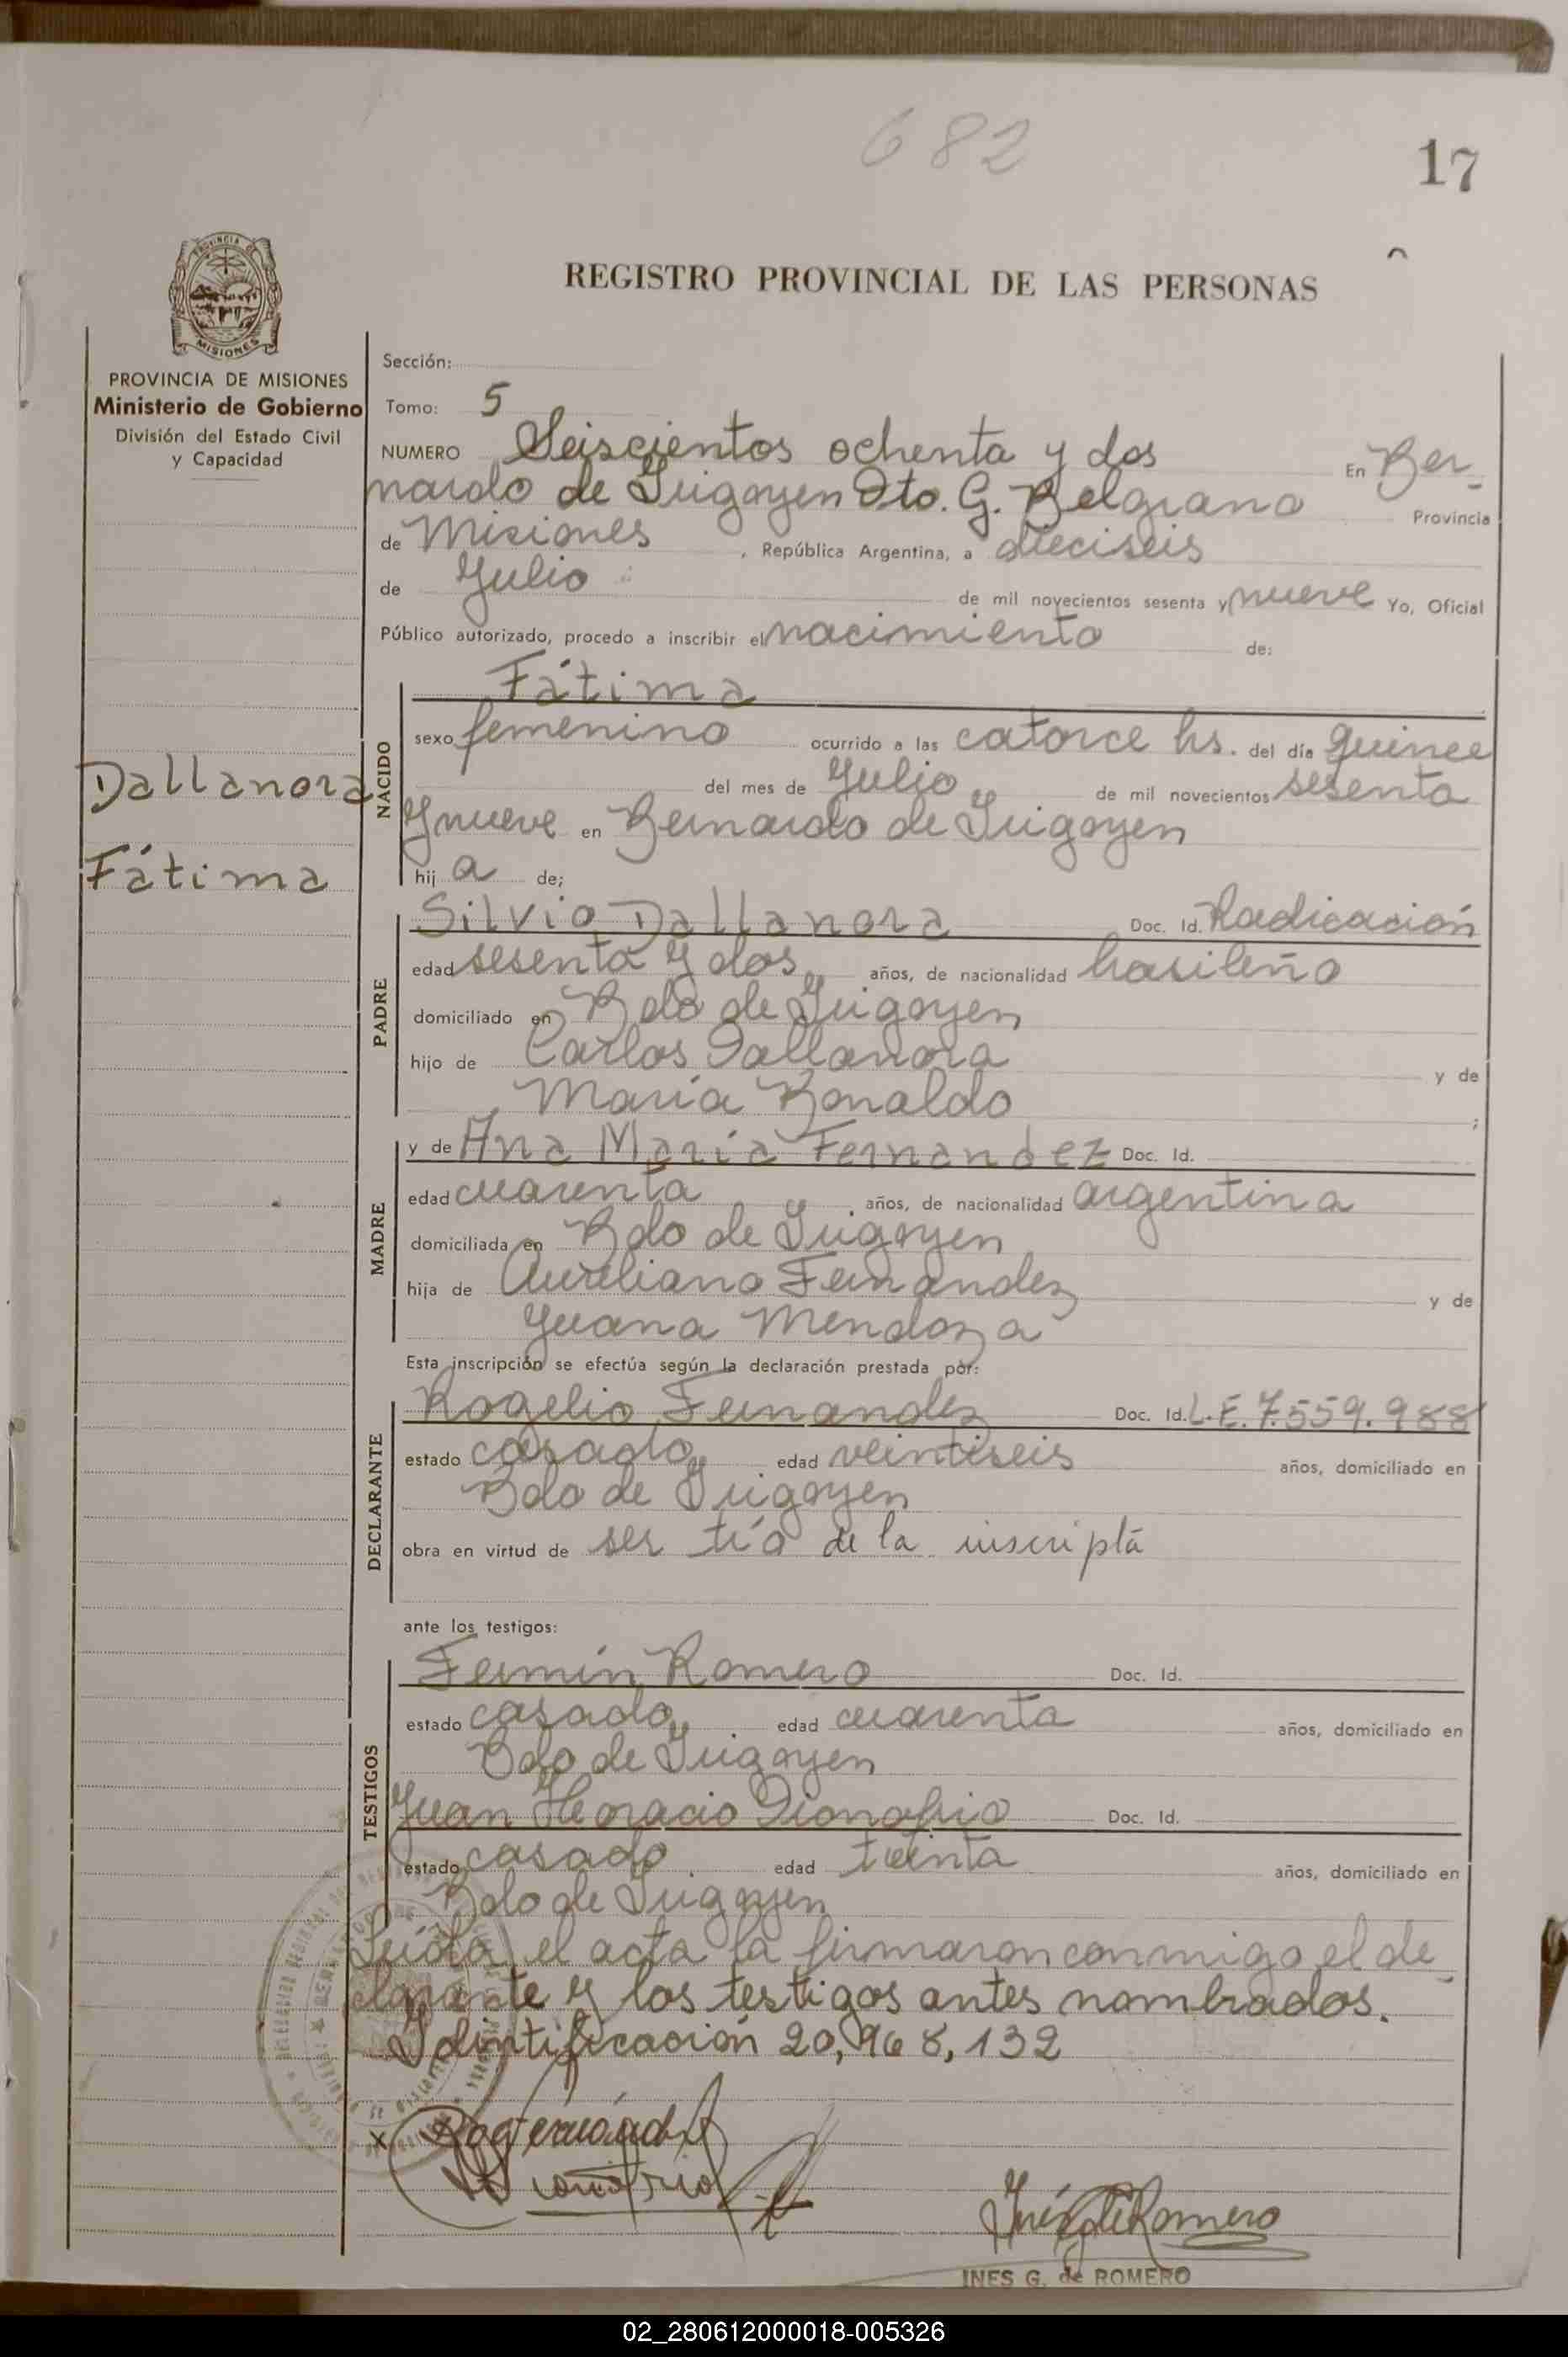 682
17
REGISTRO PROVINCIAL DE LAS PERSONAS
PROVINCIA DE
MISIONES
PROVINCIA DE MISIONES
Ministerio de Gobierno
División del Estado Civil
y Capacidad
Dallanora
Fátima
Sección:
Tomo: 5
NUMERO Seiscientos ochenta y dos En Ber-
nardo de Irigoyen Dto. G. Belgrano Provincia
de Misiones , República Argentina, a dieciseis
de Julio de mil novecientos sesenta y nueve Yo, Oficial
Público autorizado, procedo a inscribir el nacimiento de:
NACIDO
Fátima
sexo femenino ocurrido a las catorce hs. del día quince
del mes de Julio de mil novecientos sesenta
y nueve en Bernardo de Irigoyen
hij a de;
PADRE
Silvio Dallanora Doc. Id. Radicación
edad sesenta y dos años, de nacionalidad brasileño
domiciliado en Bdo de Irigoyen
hijo de Carlos Dallanora y de
María Bonaldo ;
MADRE
y de Ana María Fernandez Doc. Id.
edad cuarenta años, de nacionalidad argentina
domiciliada en Bdo de Irigoyen
hija de Aureliano Fernandez y de
Juana Mendoza
Esta inscripción se efectúa según la declaración prestada por:
DECLARANTE
Rogelio Fernandez Doc. Id. L.E. 7.559.988
estado casado edad veintiseis años, domiciliado en
Bdo de Irigoyen
obra en virtud de ser tío de la inscripta
ante los testigos:
TESTIGOS
Fermín Romero Doc. Id.
estado casado edad cuarenta años, domiciliado en
Bdo de Irigoyen
Juan Horacio Dionofrio Doc. Id.
estado casado edad treinta años, domiciliado en
Bdo de Irigoyen
Leída el acta la firmaron conmigo el de-
clarante y los testigos antes nombrados.
Identificación 20,968,132
x
Inés G. de Romero
INES G. de ROMERO
02_280612000018-005326